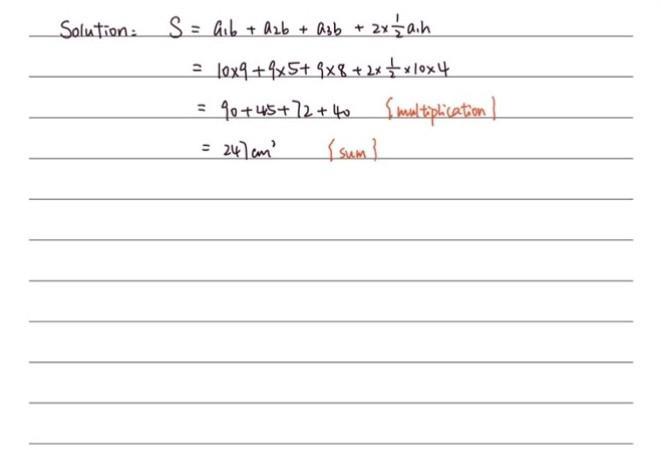 Solution: S = a₁b + a₂b + a₃b + 2×½a₁h
= 10×9+9×5+9×8+2×½×10×4
= 90+45+72+40 {multiplication}
= 247cm² {sum}